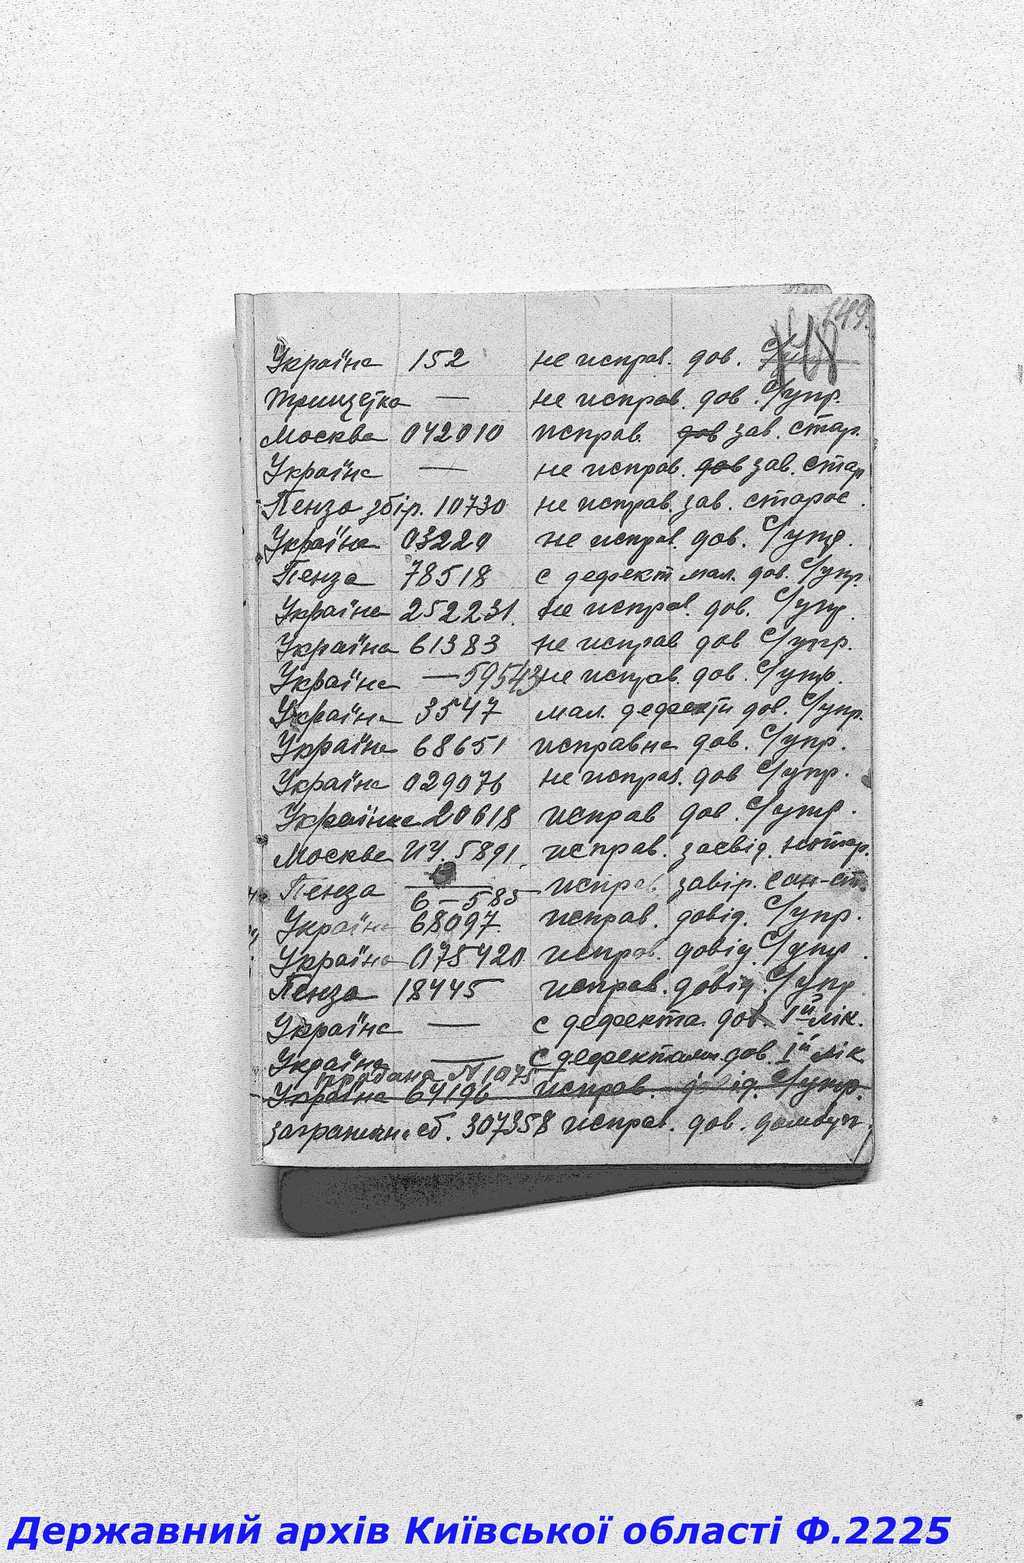 149.
118
Україна 152 не исправ. дов. С/упр.
Трищетка — не исправ. дов. С/упр.
Москва 042010 исправ. дов зав. стар.
Україна — не исправ. дов зав. стар
Пенза збір. 10730 не исправ. зав. старос.
Україна 03220 не исправ. дов. С/упр.
Пенза 78518 с дефект мал. дов. С/упр.
Україна 252231. не исправ. дов. С/упр.
Україна 61383 не исправ дов С/упр.
Україна — 59543 не исправ. дов. С/упр.
Україна 3547 мал. дефекти дов. С/упр.
Україна 68651 исправна дов. С/упр.
Україна 029076 не исправ. дов С/упр.
Україна 20618 исправ дов. С/упр.
Москва ИУ. 5891. исправ. засвід. нотар.
Пенза 6-585 исправ завір. сан-ст.
Україна 68097 исправ. довід. С/упр.
Україна 075420 исправ. довід С/упр.
Пенза 18445 исправ. довід. С/упр
Україна — с дефекта дов. 1й лік.
Україна — с дефектами дов. 1й лік
продана № 1075
Україна 64196 исправ. довід. С/упр.
загранич. сб. 307358 исправ. дов.
Державний архів Київської області Ф.2225